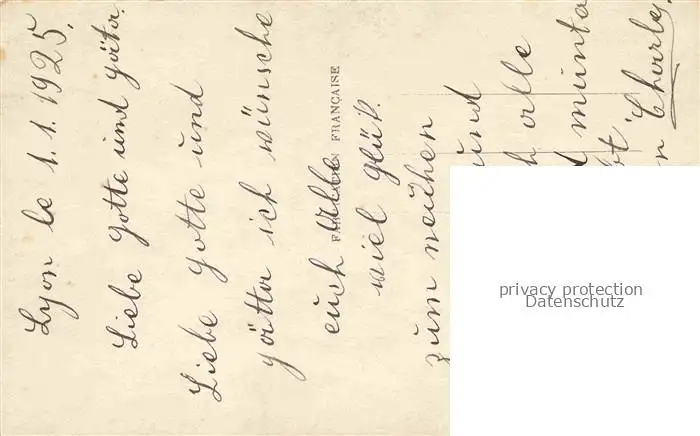 Lyon le 1.1.1925.
Liebe Gotte und götta.
Liebe Gotte und
götta ich wünsche
euch alle
viel glük.
zum neuhen
und
alle
munta
Charles
FABRICATION FRANÇAISE
privacy protection
Datenschutz